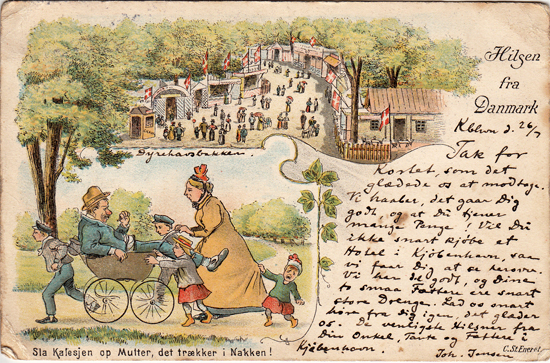 Hilsen
fra
Danmark
Kbhvn d. 26/7
Dyrehavsbakken.
Tak for
Kortet, som det
glædede os at modtage.
Vi haaber, det gaar Dig
godt, og at Du tjener
mange Penge! Vil Du
ikke snart kjøbe et
Hotel i Kjøbenhavn, saa
at Du faar Dig at se herovre.
Vi har det godt, og Dine
to smaa Fættere ere snart
store Drenge. Lad os snart
høre fra dig igen, det glæder
os. De venligste Hilsner fra
Din Onkel, Tante og Fættere i
Kjøbenhavn. Joh. Jensen
Sla Kalesjen op Mutter, det trækker i Nakken!
C. St. Eneret.